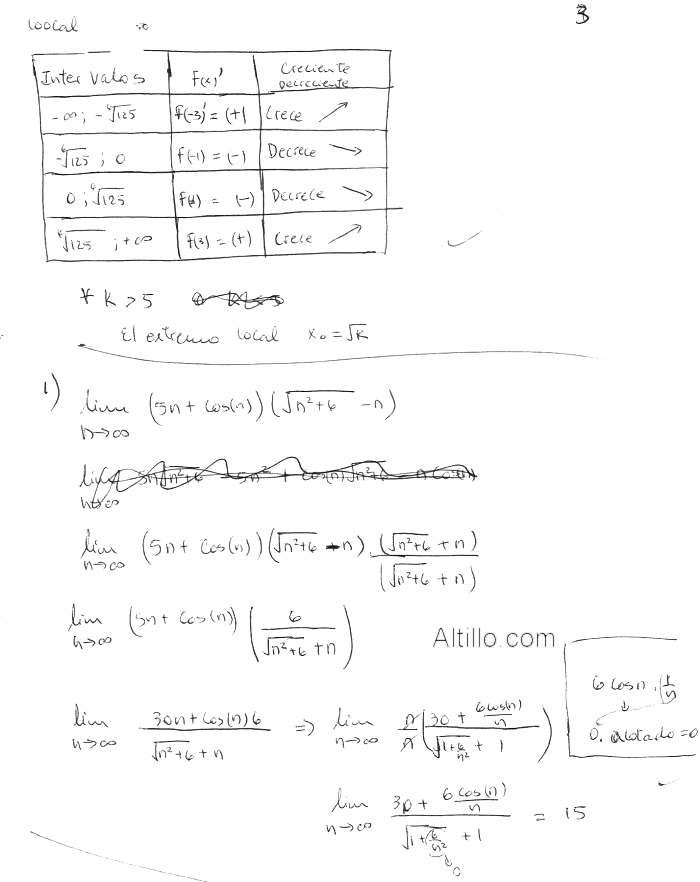 3
Local
Intervalos | f(x)' | Creciente Decreciente
-∞; -⁴√125 | f(-3)' = (+) | Crece ↗
-⁴√125 ; 0 | f(-1) = (-) | Decrece ↘
0 ; ⁴√125 | f(1) = (-) | Decrece ↘
⁴√125 ; +∞ | f(3) = (+) | Crece ↗
∀ k > 5
El extremo local x₀ = √k
1) lim n→∞ (5n + cos(n)) (√(n²+6) - n)
lim n→∞ (5n + cos(n)) (√(n²+6) - n) . (√(n²+6) + n) / (√(n²+6) + n)
lim n→∞ (5n + cos(n)) (6 / (√(n²+6) + n))
Altillo.com
6 cos n . (1/n)
0. acotado = 0
lim n→∞ (30n + cos(n) 6) / (√(n²+6) + n) ⇒ lim n→∞ n/n ((30 + 6cos(n)/n) / (√(1 + 6/n²) + 1))
lim n→∞ (30 + 6 cos(n)/n) / (√(1 + 6/n²) + 1) = 15
0